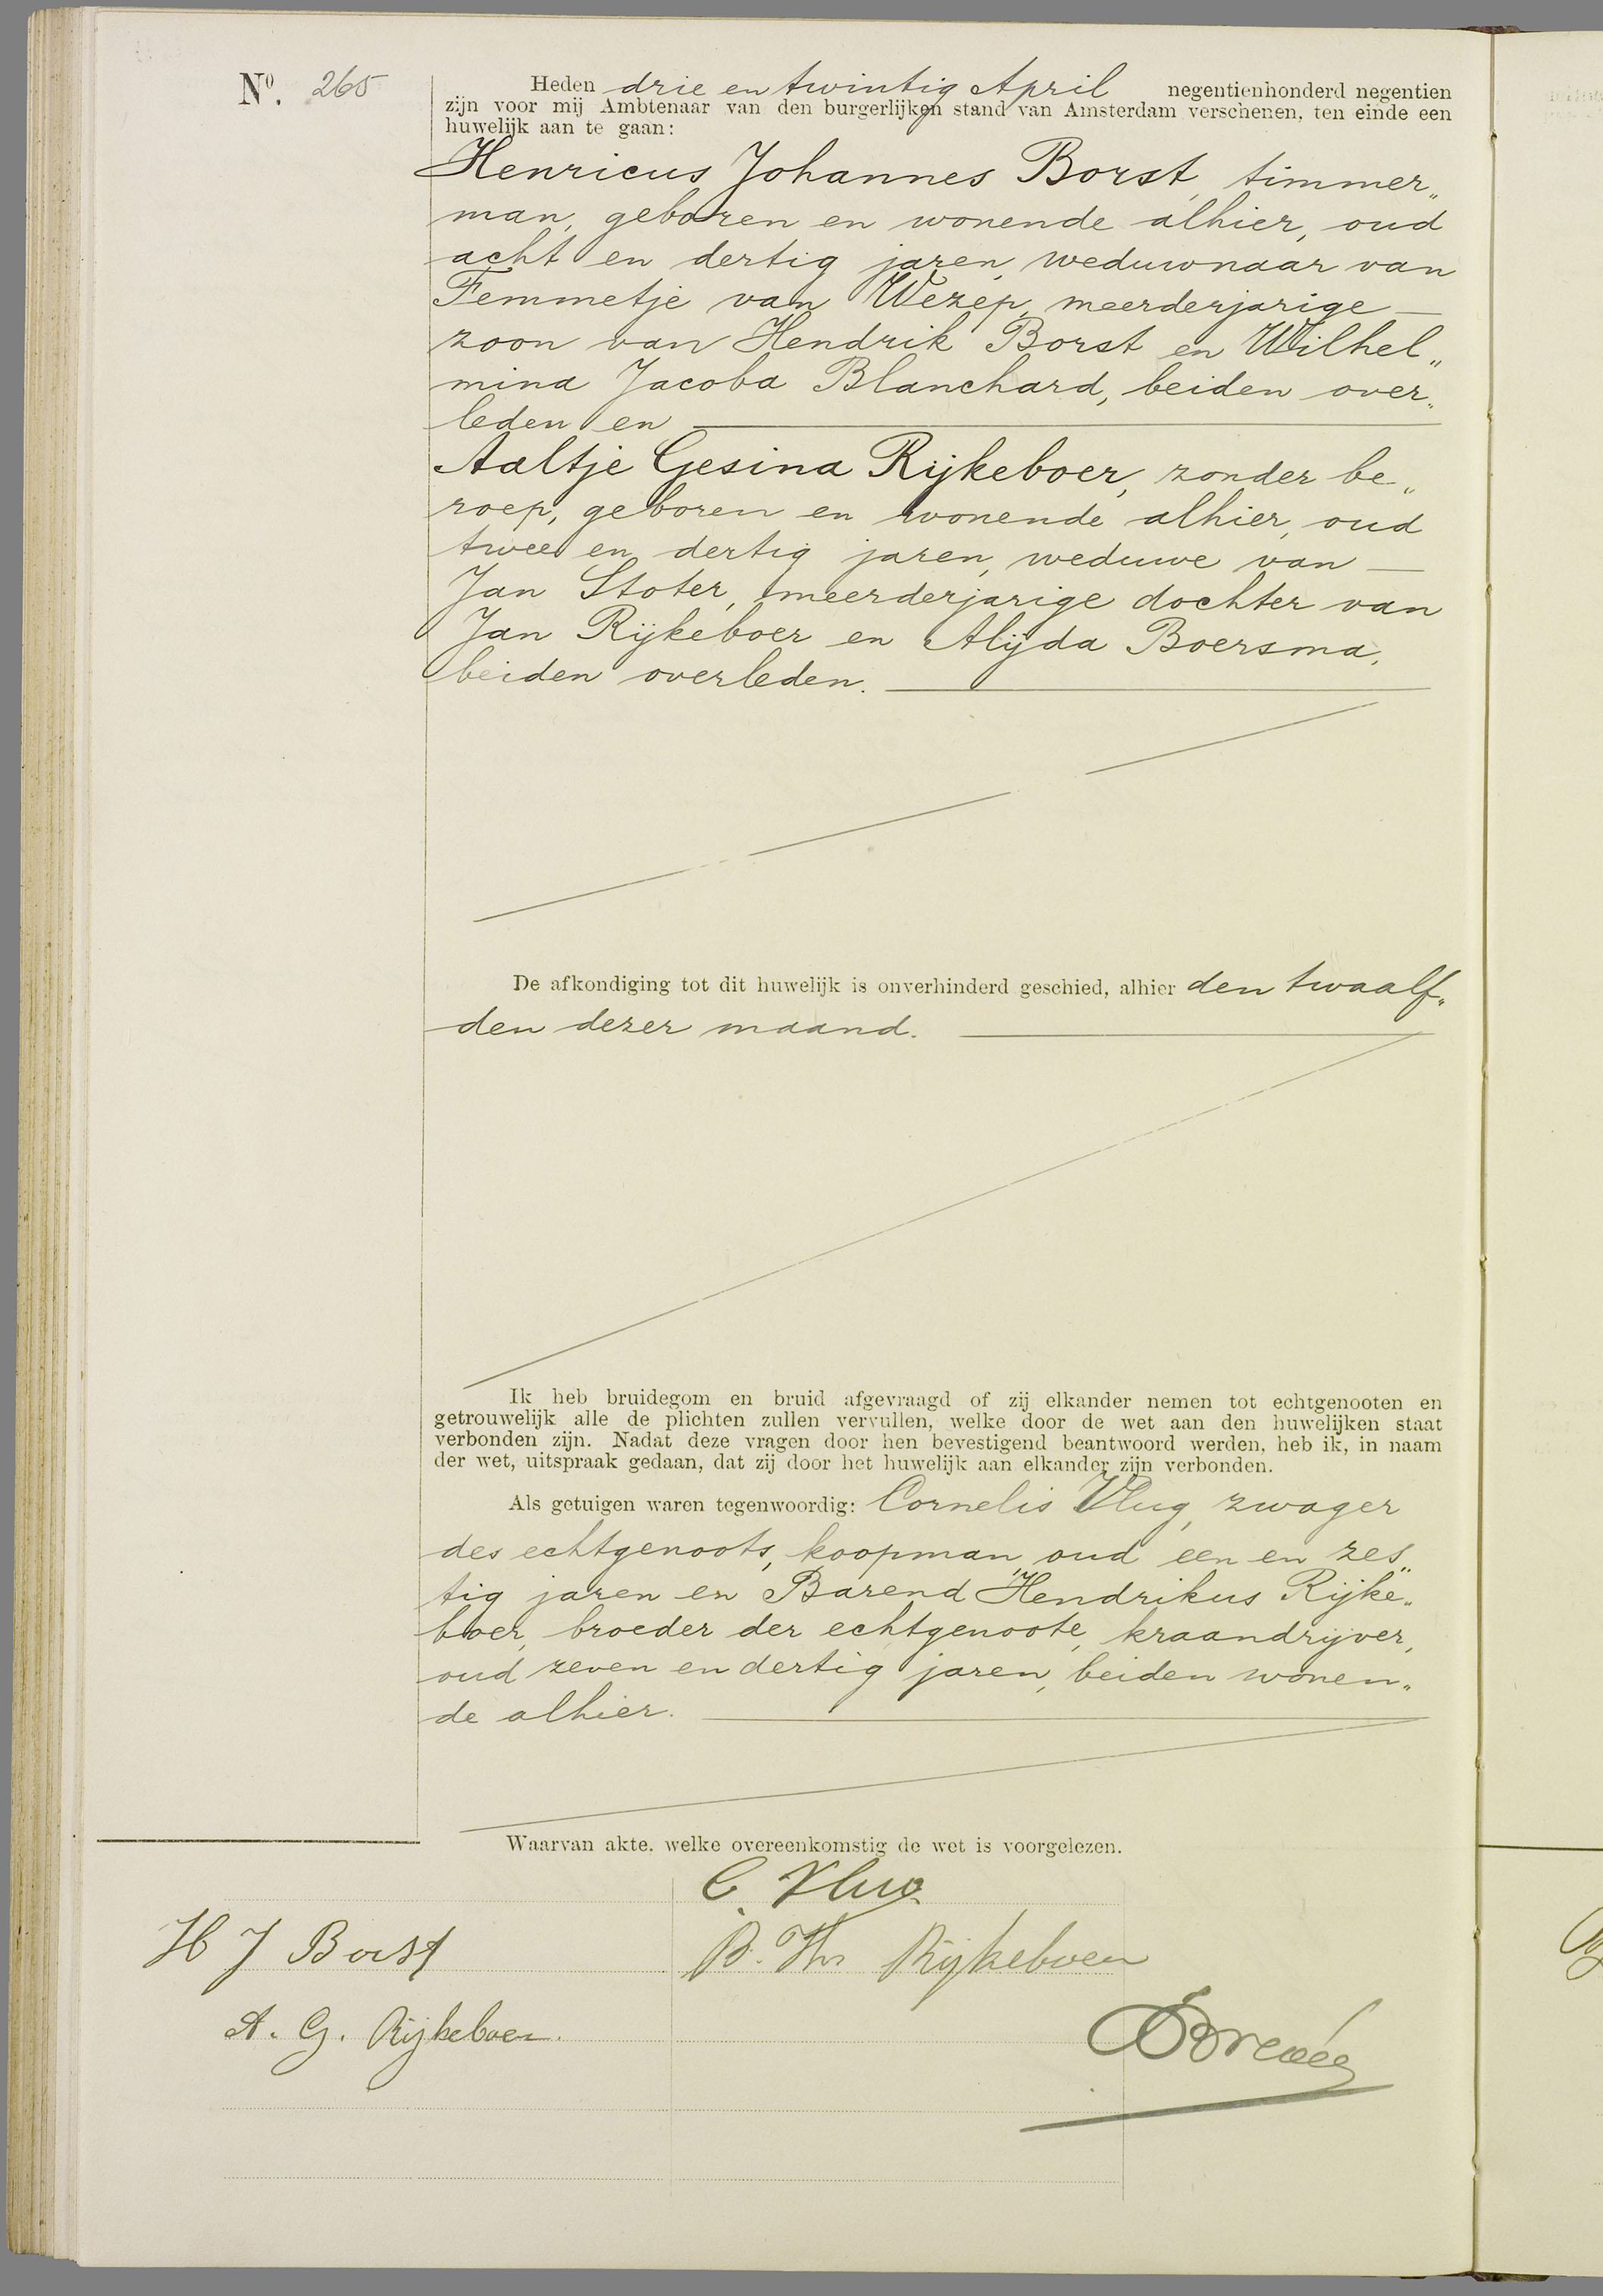 Nº. 265
Heden drie en twintig April negentienhonderd negentien
zijn voor mij Ambtenaar van den burgerlijken stand van Amsterdam verschenen, ten einde een
huwelijk aan te gaan:
Henricus Johannes Borst, timmer„
man, geboren en wonende alhier, oud
acht en dertig jaren, weduwnaar van
Femmetje van Wezep, meerderjarige
zoon van Hendrik Borst en Wilhel„
mina Jacoba Blanchard, beiden over„
leden en
Aaltje Gesina Rijkeboer, zonder be„
roep, geboren en wonende alhier, oud
twee en dertig jaren, weduwe van
Jan Stoter, meerderjarige dochter van
Jan Rijkeboer en Alijda Boersma,
beiden overleden.
De afkondiging tot dit huwelijk is onverhinderd geschied, alhier den twaalf„
den dezer maand.
Ik heb bruidegom en bruid afgevraagd of zij elkander nemen tot echtgenooten en
getrouwelijk alle de plichten zullen vervullen, welke door de wet aan den huwelijken staat
verbonden zijn. Nadat deze vragen door hen bevestigend beantwoord werden, heb ik, in naam
der wet, uitspraak gedaan, dat zij door het huwelijk aan elkander zijn verbonden.
Als getuigen waren tegenwoordig: Cornelis Vlug, zwager
des echtgenoots, koopman, oud een en zes„
tig jaren en Barend Hendrikus Rijke„
boer, broeder der echtgenoote, kraandrijver,
oud zeven en dertig jaren, beiden wonen„
de alhier.
Waarvan akte, welke overeenkomstig de wet is voorgelezen.
C. Vlug
H J Borst
B. Hs Rijkeboer
A. G. Rijkeboer.